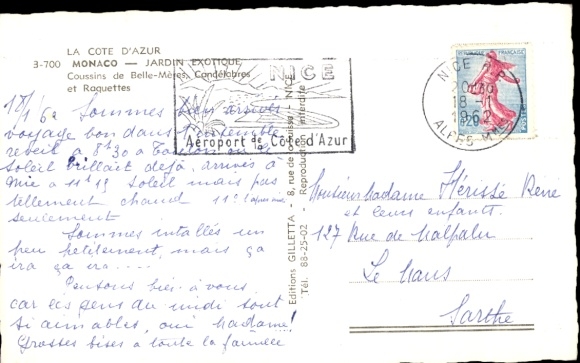 LA COTE D'AZUR
3-700 MONACO — JARDIN EXOTIQUE
Coussins de Belle-Mères, Candélabres
et Raquettes
NICE
Aéroport de la Côte d'Azur
NICE R.P
18 - 1
1962
ALPES-MMES
REPUBLIQUE FRANÇAISE
0,20
POSTES
18/1/62 Sommes bien arrivés
voyage bon dans l'ensemble
à 8h30 à Toulon où le
soleil brillait déjà, arrivés à
Nice à 11h19 soleil mais pas
tellement chaud 11°
seulement
Sommes intallés un
peu petitement, mais ça
ira ça ira ....
Pensons bien à vous
car les gens du midi sont
si aimables, oui Madame!
Grosses bises à toute la famille
Editions GILLETTA - 8, rue de Suisse - NICE
Tél. 88-25-02 - Reproduction interdite
Monsieur Madame Hérissé René
et leurs enfants.
127 Rue de Malpalu
Le Mans
Sarthe